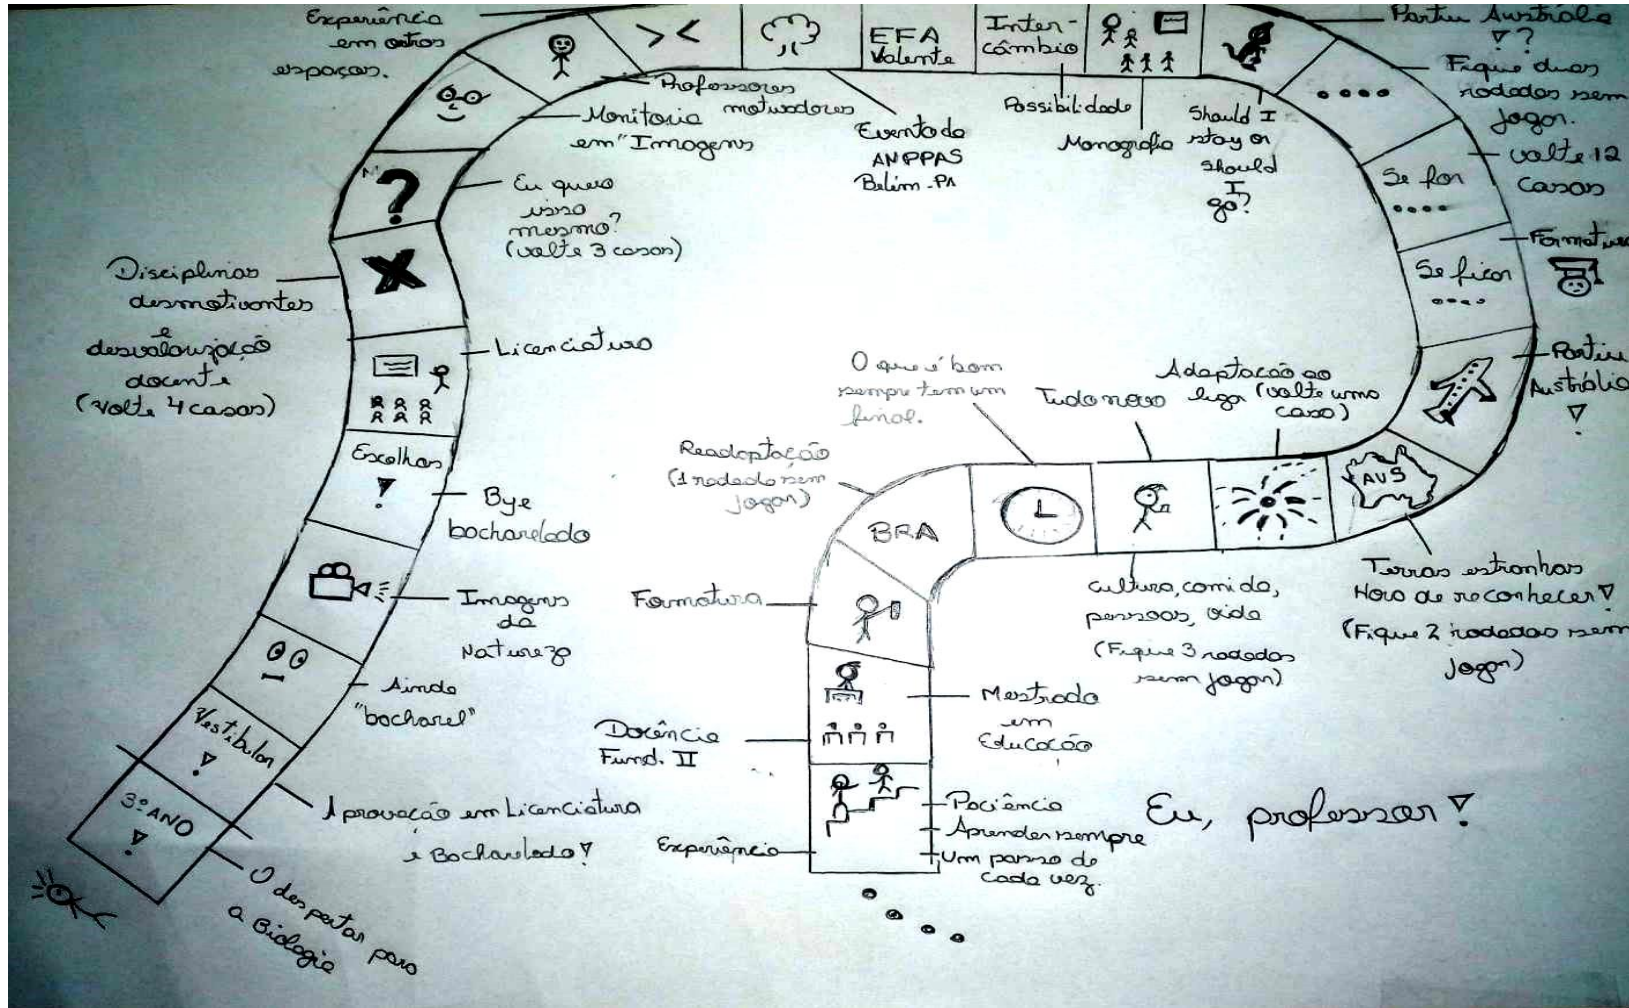 3º ANO !
O despertar para
a Biologia
Vestibular !
Aprovação em Licenciatura
e Bacharelado!
Ainda
"bacharel"
Imagens
da
Natureza
Escolhas
!
Bye
bacharelado
Licenciatura
Disciplinas
desmotivantes
e
desvalorização
docente
(Volte 4 casas)
?
Eu quero
isso
mesmo?
(volte 3 casas)
Monitoria
em "Imagens
Professores
motivadores
Experiência
em outros
espaços.
> <
EFA
Valente
Evento da
ANPPAS
Belém-PA
Inter-
câmbio
Possibilidade
Monografia
Should I
stay or
should
I
go?
Partiu Austrália
!?
....
Fique duas
rodadas sem
jogar.
Se for
....
volte 12
casas
Se ficar
....
Formatura
Partiu
Austrália
!
AUS
Terras estranhas
Hora de reconhecer!
(Fique 2 rodadas sem
jogar)
Adaptação ao
lugar (volte uma
casa)
Tudo novo
Cultura, comida,
pessoas, vida
(Fique 3 rodadas
sem jogar)
O que é bom
sempre tem um
final.
BRA
Readaptação
(1 rodada sem
jogar)
Formatura
Mestrado
em
Educação
Docência
Fund. II
Paciência
Aprender sempre
Um passo de
cada vez.
Experiência
Eu, professor!